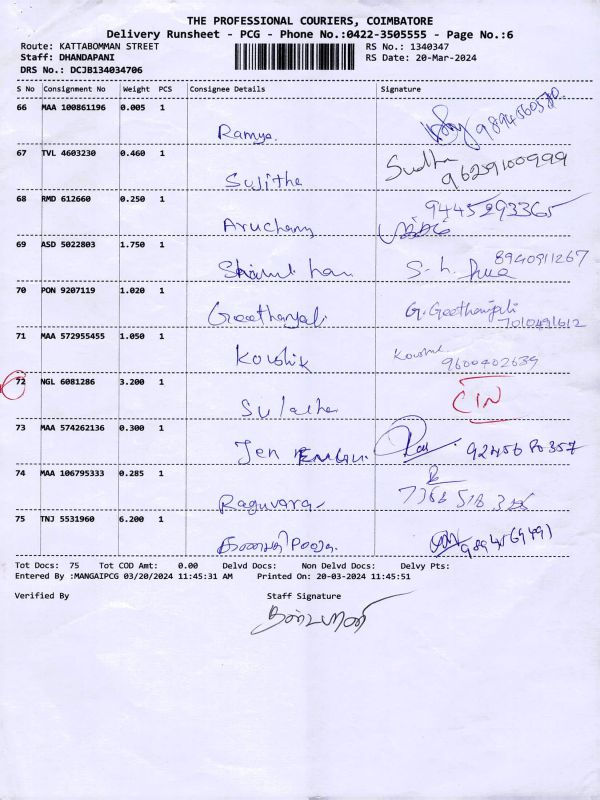 THE PROFESSIONAL COURIERS, COIMBATORE
Delivery Runsheet - PCG - Phone No.:0422-3505555 - Page No.:6
Route: KATTABOMMAN STREET RS No.: 1340347
Staff: DHANDAPANI RS Date: 20-Mar-2024
DRS No.: DCJB134034706
S No Consignment No Weight PCS Consignee Details Signature
66 MAA 100861196 0.005 1
Ramya.
67 TVL 4603230 0.460 1 Sudha
Sujitha 9629100999
68 RMD 612660 0.250 1 9445293365
69 ASD 5022803 1.750 1 8940911267
70 PON 9207119 1.020 1 G. Geethanjali
Geethanjali 7010491612
71 MAA 572955455 1.050 1
Koushik 9600402639
72 NGL 6081286 3.200 1 CIN
73 MAA 574262136 0.300 1
Jen 92456 80357
74 MAA 106795333 0.285 1
Raguvara
75 TNJ 5531960 6.200 1
Pooja.
Tot Docs: 75 Tot COD Amt: 0.00 Delvd Docs: Non Delvd Docs: Delvy Pts:
Entered By :MANGAIPCG 03/20/2024 11:45:31 AM Printed On: 20-03-2024 11:45:51
Verified By Staff Signature